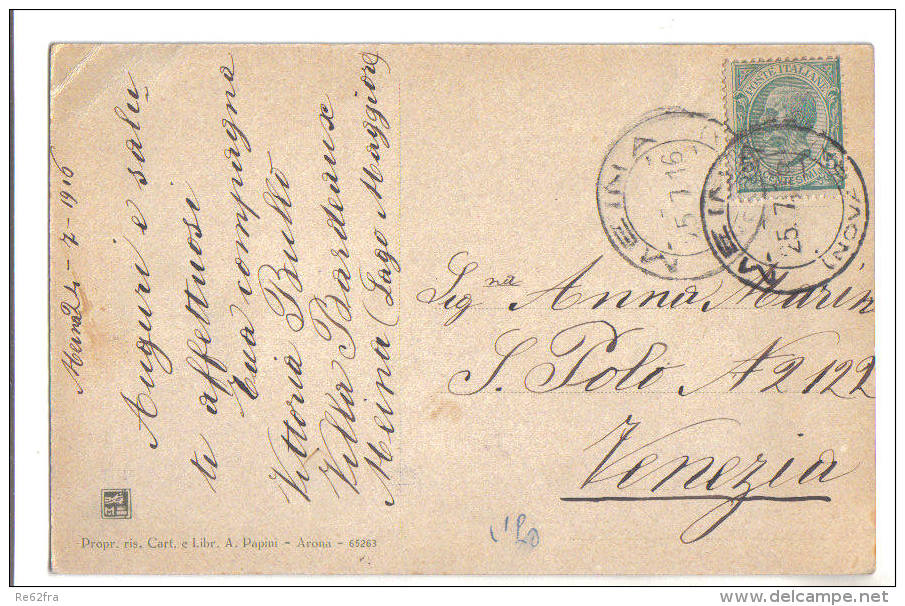 Meina 24 - 7 - 1916
Auguri e salu
ti affettuosi
tua compagna
Vittoria Bullo
Villa Bardeaux
Meina (Lago Maggiore)
POSTE ITALIANE
CENTESIMI
MEINA
25.7.16
MEINA (NOVARA)
25.7
Sig.na Anna Marin
S. Polo N 2122
Venezia
Propr. ris. Cart. e Libr. A. Papini - Arona - 65263
Re62fra
www.delcampe.net